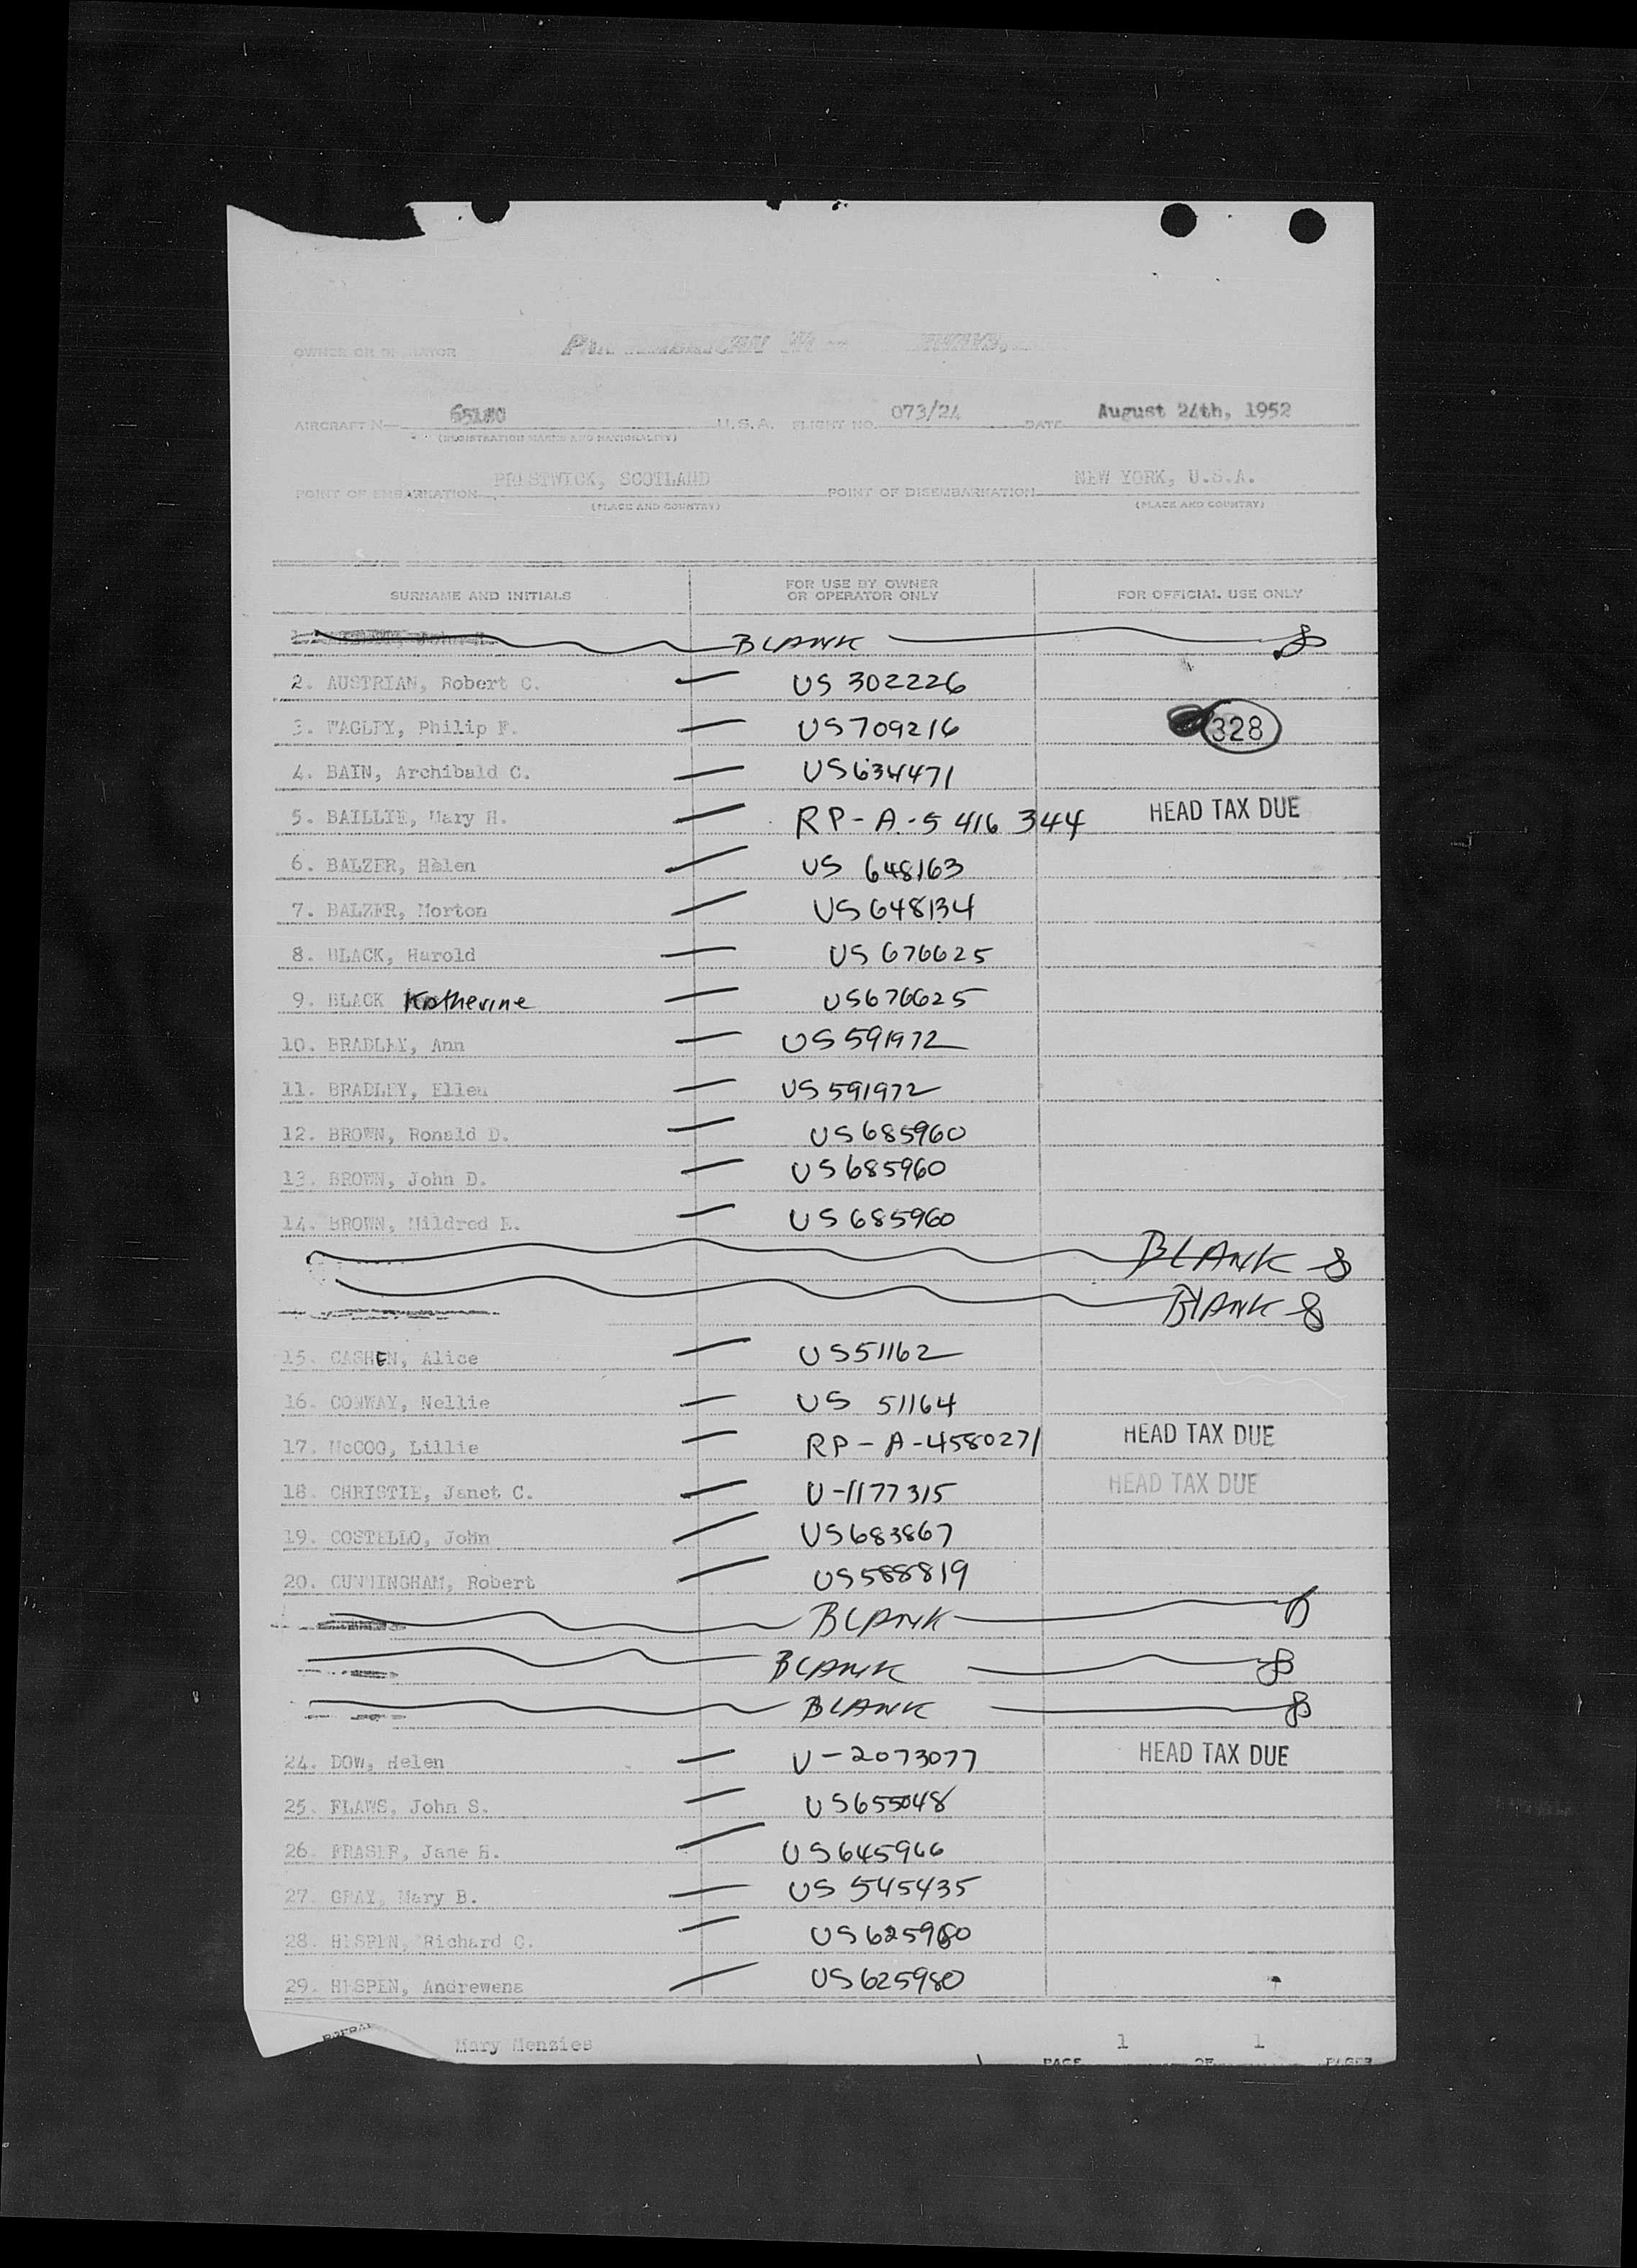 OWNER OR OPERATOR PAN AMERICAN
AIRCRAFT N— U.S.A. FLIGHT NO. 073/24 DATE August 24th, 1952
(REGISTRATION MARKS AND NATIONALITY)
POINT OF EMBARKATION PRESTWICK, SCOTLAND POINT OF DISEMBARKATION NEW YORK, U.S.A.
(PLACE AND COUNTRY) (PLACE AND COUNTRY)
SURNAME AND INITIALS FOR USE BY OWNER OR OPERATOR ONLY FOR OFFICIAL USE ONLY
BLANK
2. AUSTRIAN, Robert C. US 302226
3. WAGLEY, Philip F. US709216 328
4. BAIN, Archibald C. US634471
5. BAILLIE, Mary H. RP-A-5 416 344 HEAD TAX DUE
6. BALZER, Helen US 648163
7. BALZER, Morton US648134
8. BLACK, Harold US 676625
9. BLACK Katherine US676625
10. BRADLEY, Ann US591972
11. BRADLEY, Ellen US591972
12. BROWN, Ronald D. US685960
13. BROWN, John D. US685960
14. BROWN, Mildred E. US685960
BLANK
BLANK
15. CASHEN, Alice US51162
16. CONWAY, Nellie US 51164
17. McCOO, Lillie RP-A-4580271 HEAD TAX DUE
18. CHRISTIE, Janet C. U-1177315 HEAD TAX DUE
19. COSTELLO, John US683867
20. CUNNINGHAM, Robert US588819
BLANK
BLANK
BLANK
24. DOW, Helen U-2073077 HEAD TAX DUE
25. FLAWS, John S. US655048
26. FRASER, Jane H. US645966
27. GRAY, Mary B. US 545435
28. HESPEN, Richard C. US625980
29. HESPEN, Andrewena US625980
Mary Menzies PAGE 1 OF 1 PAGES